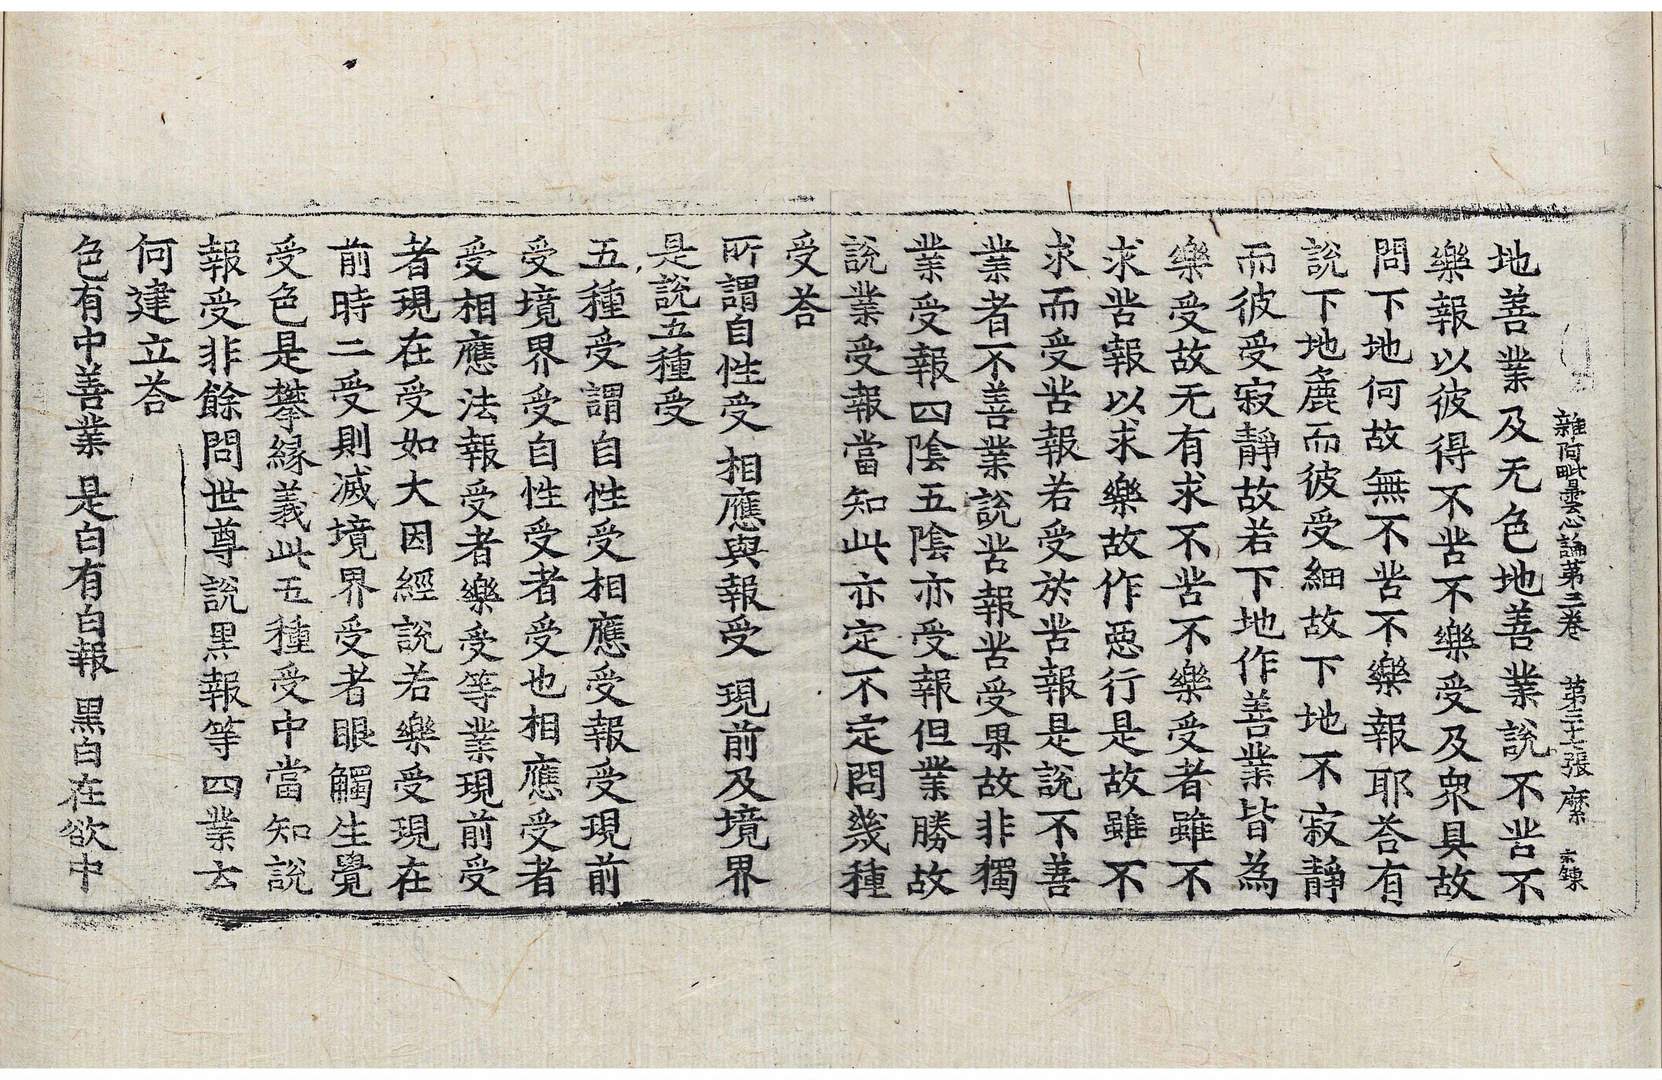 雜阿毗曇心論第三卷 第二十七張 縻
地善業及无色地善業說不苦不
樂報以彼得不苦不樂受及衆具故
問下地何故無不苦不樂報耶荅有
說下地麁而彼受細故下地不寂靜
而彼受寂靜故若下地作善業皆為
樂受故无有求不苦不樂受者雖不
求苦報以求樂故作惡行是故雖不
求而受苦報若受於苦報是說不善
業者不善業說苦報苦受果故非獨
業受報四陰五陰亦受報但業勝故
說業受報當知此亦定不定問幾種
受荅
所謂自性受 相應與報受 現前及境界
是說五種受
五種受謂自性受相應受報受現前
受境界受自性受者受也相應受者
受相應法報受者樂受等業現前受
者現在受如大因經說若樂受現在
前時二受則滅境界受者眼觸生覺
受色是攀緣義此五種受中當知說
報受非餘問世尊說黑報等四業云
何建立荅
色有中善業 是白有白報 黑白在欲中